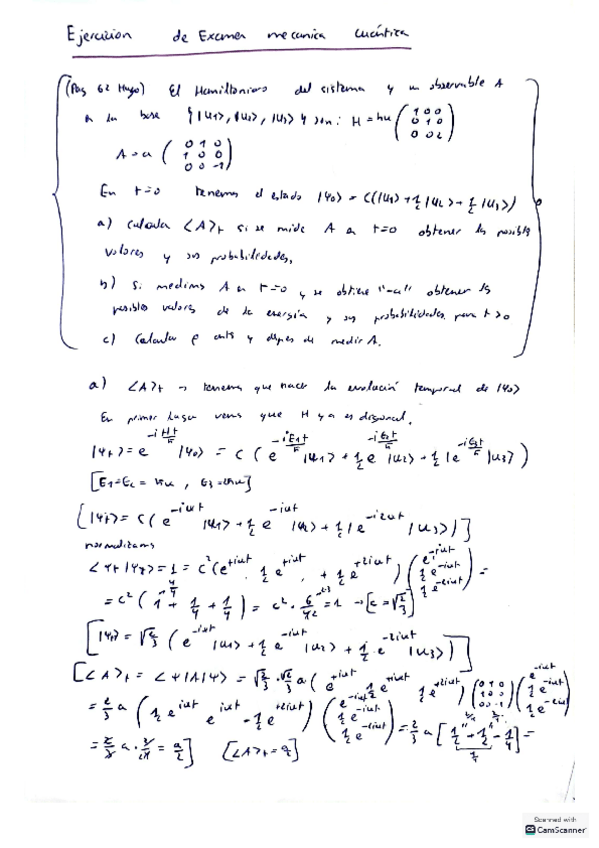 Ejercicios de Examen mecanica cuántica
(Pag 62 Hugo) El Hamiltoniano del sistema y un observable A
en la base {|u1>, |u2>, |u3>} son: H = ħω (1 0 0 / 0 1 0 / 0 0 2)
A = a (0 1 0 / 1 0 0 / 0 0 -1)
En t=0 tenemos el estado |Ψ0> = C(|u1> + 1/2 |u2> + 1/2 |u3>)
a) calcula <A>t si se mide A en t=0 obtener los posibles
valores y sus probabilidades.
b) Si medimos A en t=0 y se obtiene "-a" obtener los
posibles valores de la energía y sus probabilidades para t>0
c) Calcular ρ antes y después de medir A.
a) <A>t → tenemos que hacer la evolución temporal de |Ψ0>
En primer lugar vemos que H ya es diagonal.
|Ψt> = e^(-iHt/ħ) |Ψ0> = C (e^(-iE1t/ħ) |u1> + 1/2 e^(-iE2t/ħ) |u2> + 1/2 e^(-iE3t/ħ) |u3>)
[E1=E2 = ħω, E3=2ħω]
[|Ψt> = C(e^(-iωt) |u1> + 1/2 e^(-iωt) |u2> + 1/2 e^(-i2ωt) |u3>)]
normalizamos
<Ψt|Ψt> = 1 = C²(e^(+iωt), 1/2 e^(+iωt), + 1/2 e^(+2iωt)) (e^(-iωt) / 1/2 e^(-iωt) / 1/2 e^(-2iωt)) =
= C² (1 + 1/4 + 1/4) = C² · 6/4 = 1 → [C = √(2/3)]
[|Ψt> = √(2/3) (e^(-iωt) |u1> + 1/2 e^(-iωt) |u2> + 1/2 · e^(-2iωt) |u3>)]
[<A>t = <Ψ|A|Ψ> = √(2/3) · √(2/3) a (e^(+iωt) 1/2 e^(+iωt) 1/2 e^(+2iωt)) (0 1 0 / 1 0 0 / 0 0 -1) (e^(-iωt) / 1/2 e^(-iωt) / 1/2 e^(-2iωt))
= 2/3 a (1/2 e^(iωt) e^(iωt) -1/2 e^(+2iωt)) (e^(-iωt) / 1/2 e^(-iωt) / 1/2 e^(-2iωt)) = 2/3 a [1/2 + 1/2 - 1/4] =
= 2/3 a · 3/4 = a/2] [<A>t = a/2]
Scanned with
CamScanner